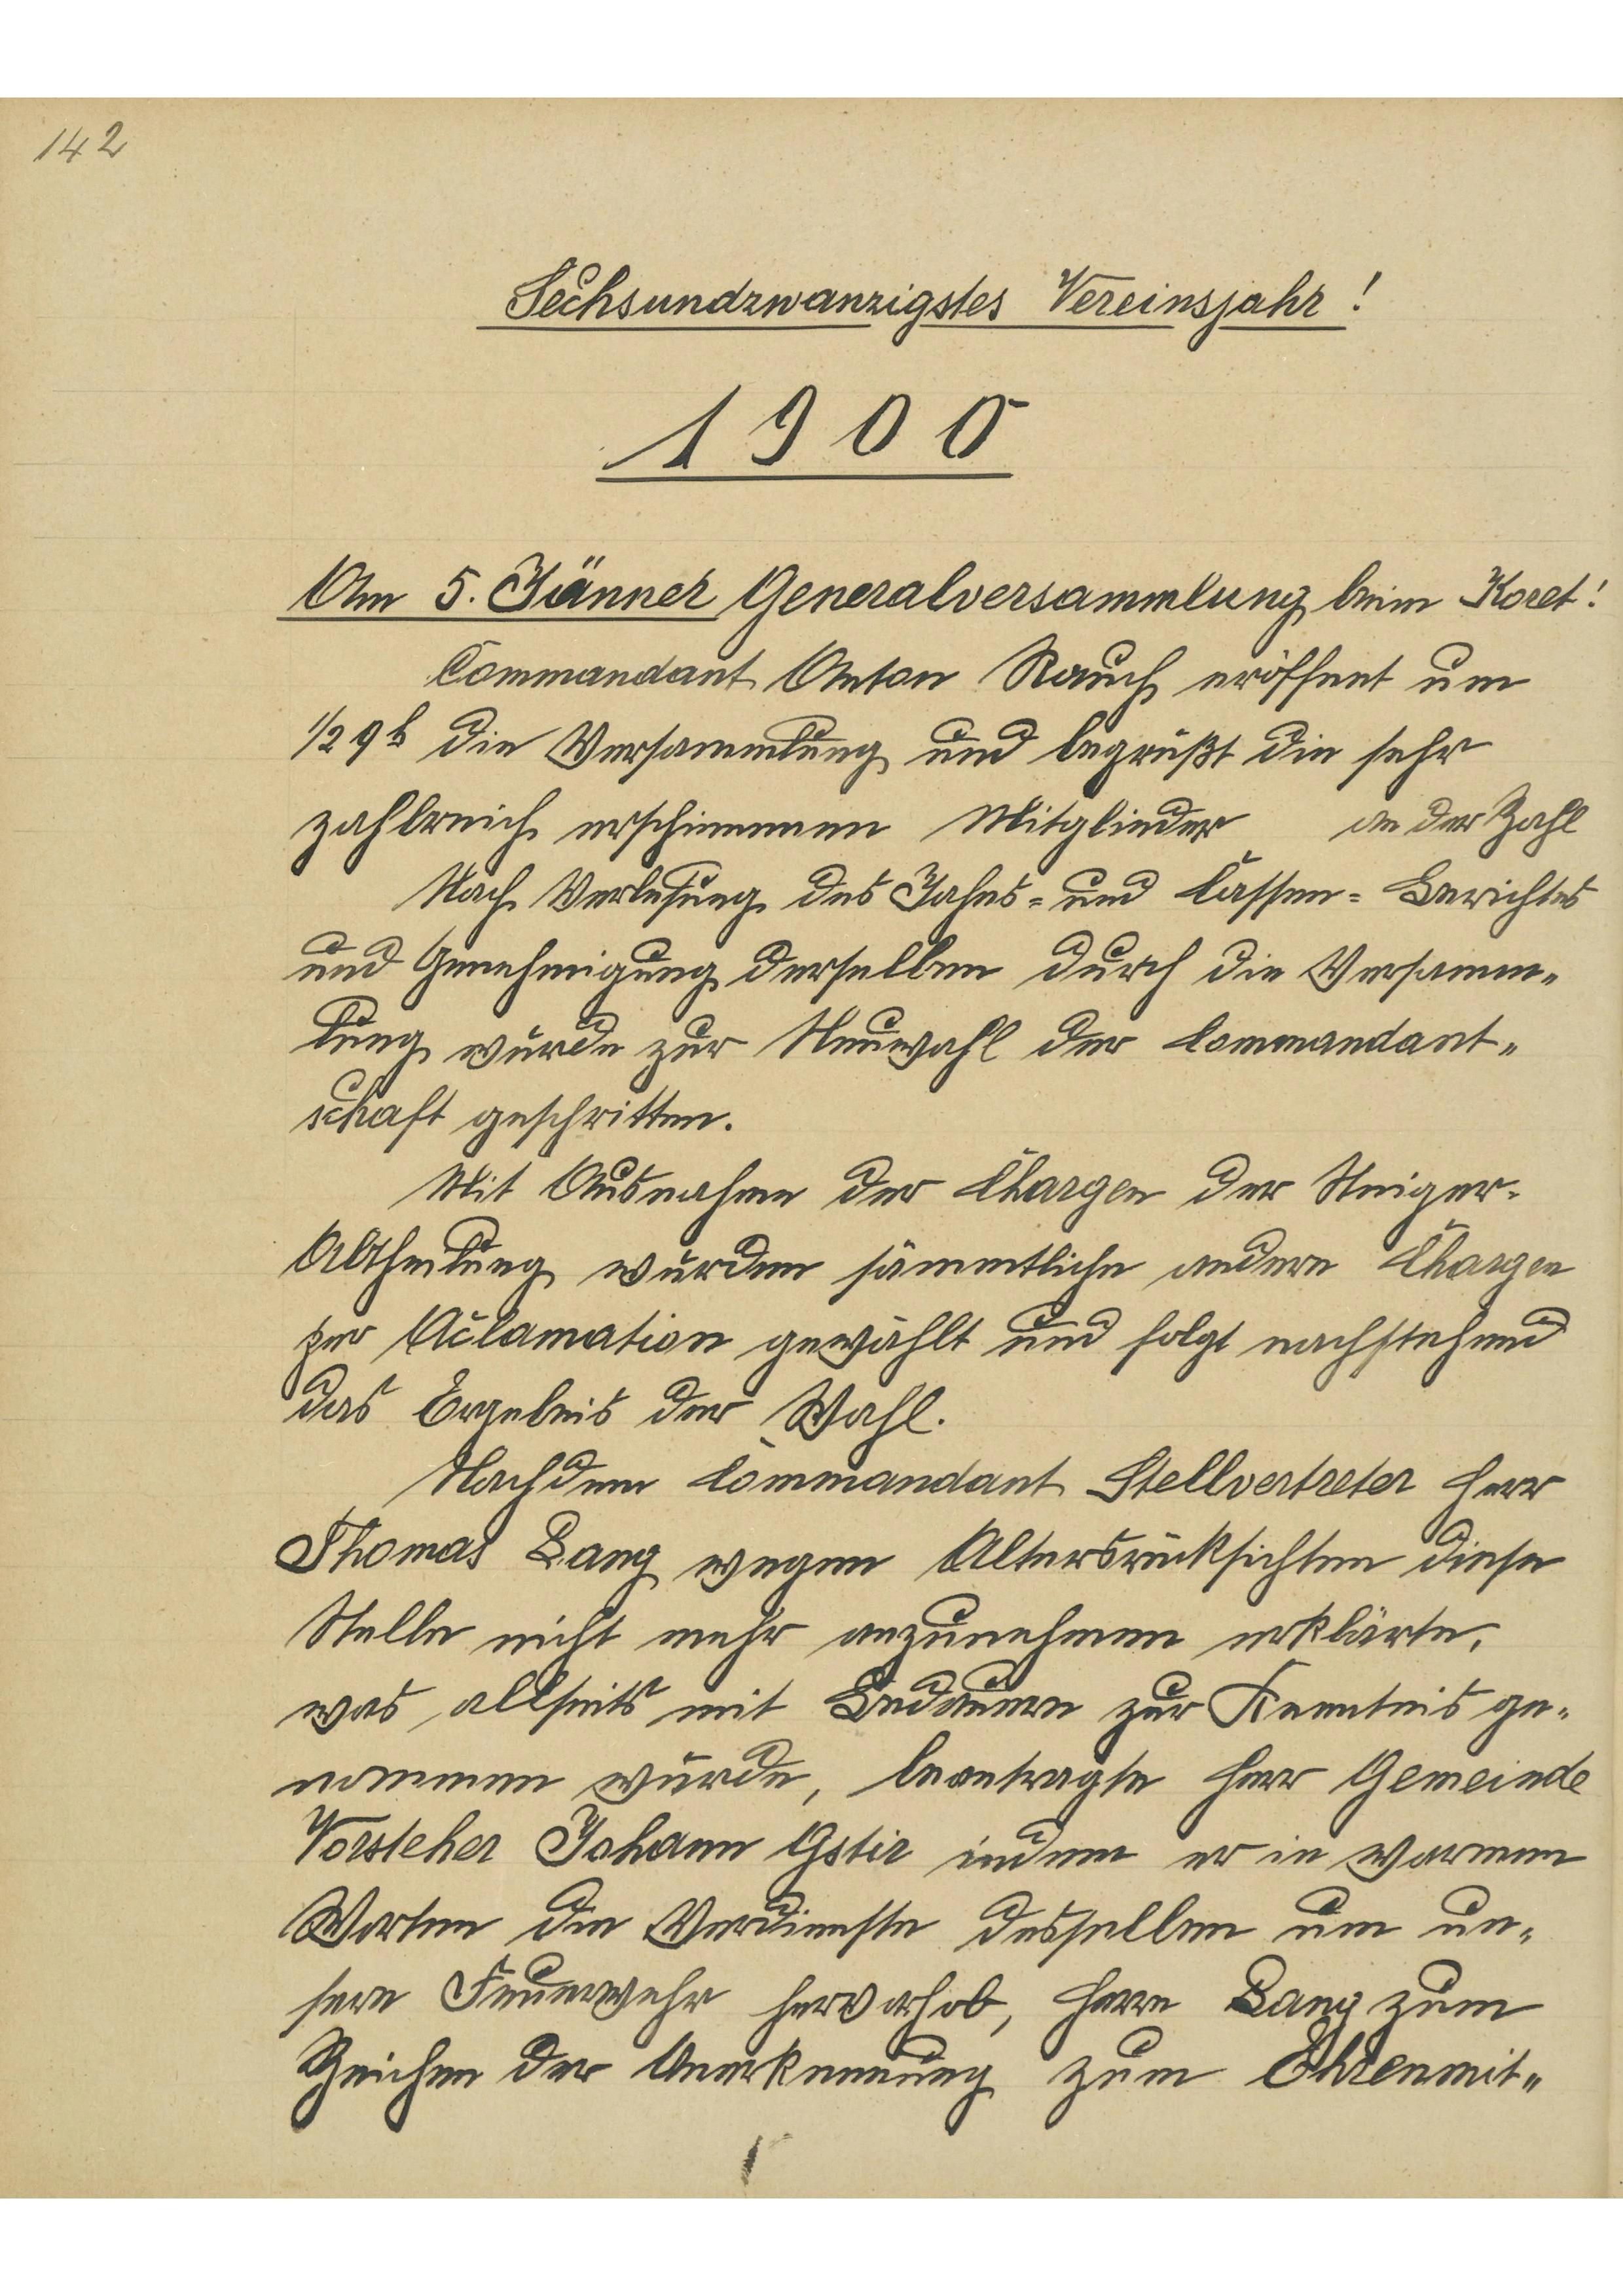 142
Sechsundzwanzigstes Vereinsjahr!
1900
Am 5. Jänner Generalversammlung beim Koret!
Commandant Anton Rauch eröffnet um
1/2 9h die Versammlung und begrüßt die sehr
zahlreich erschienenen Mitglieder an der Zahl
Nach Verlesung des Jahres- und Cassen- Berichtes
und Genehmigung derselben durch die Versamm-
lung wurde zur Neuwahl der Commandant-
schaft geschritten.
Mit Ausnahme der Chargen der Steiger-
Abtheilung wurden sämmtliche andere Chargen
per Aclamation gewählt und folgt nachstehend
das Ergebnis der Wahl.
Nachdem Commandant Stellvertreter Herr
Thomas Lang wegen Altersrücksichten diese
Stelle nicht mehr anzunehmen erklärte,
was allseits mit Bedauern zur Kenntnis ge-
nommen wurde, beantragte Herr Gemeinde
Vorsteher Johann Gstir indem er in warmen
Worten die Verdienste desselben um un-
sere Feuerwehr hervorhob, Herrn Lang zum
Zeichen der Anerkennung zum Ehrenmit-